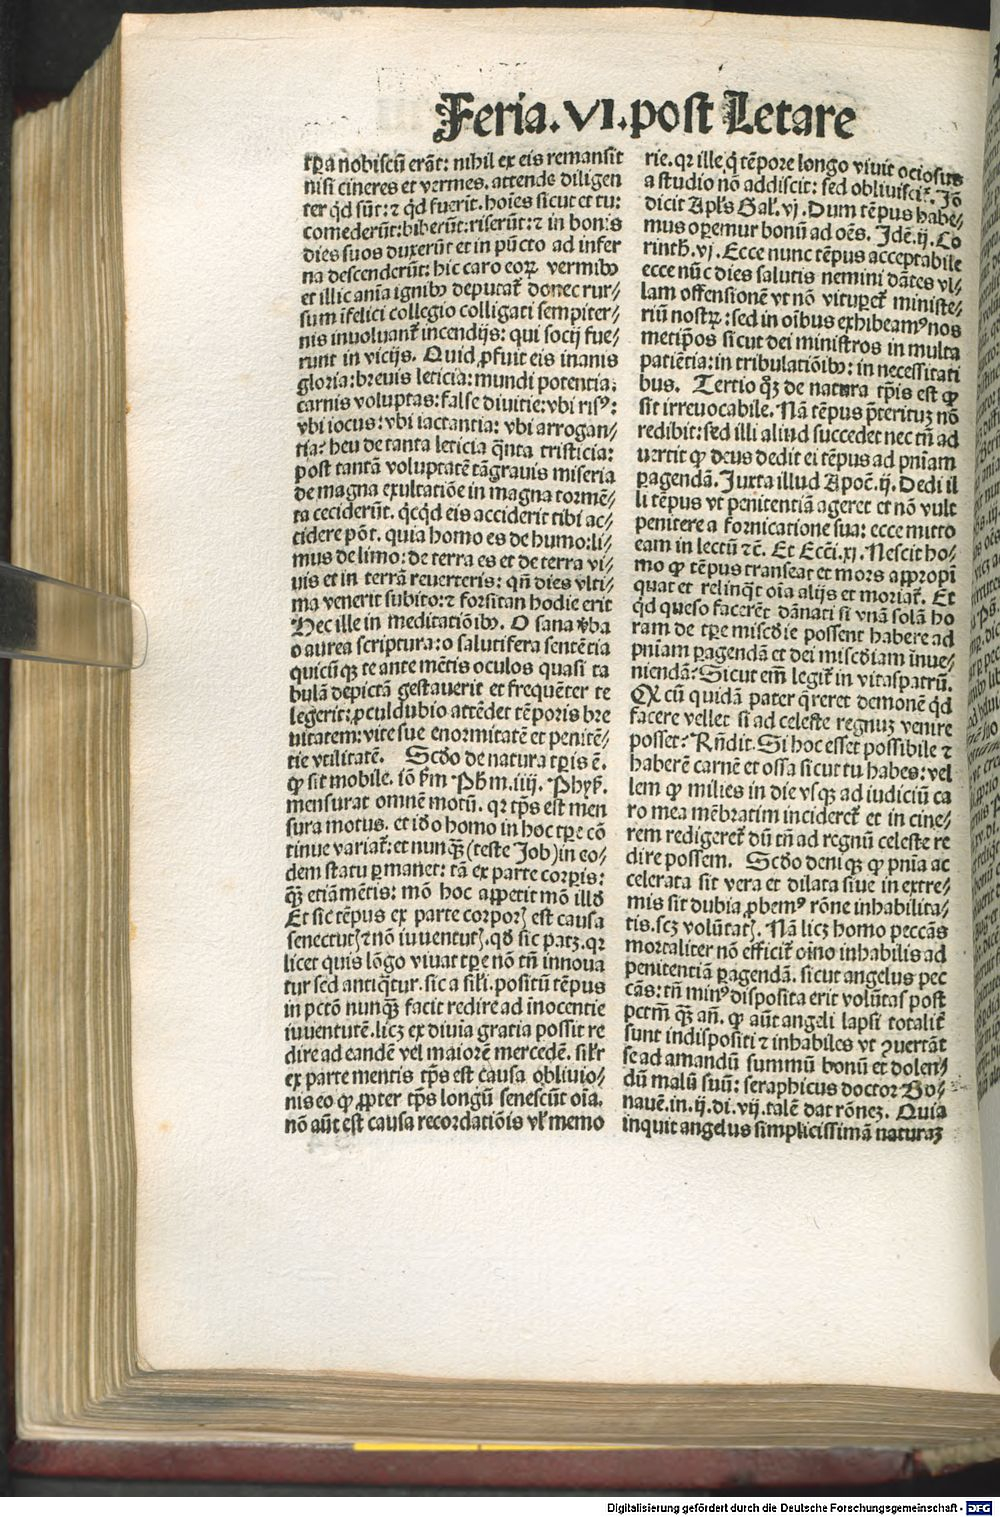 Feria. VI. post Letare
tꝑa nobiscū erāt: nihil ex eis remansit
nisi cineres et vermes. attende diligen
ter qd̄ sūt: ⁊ qd̄ fuerīt. hoīes sicut et tu:
comederūt: biberūt: riserūt: ⁊ in bonis
dies suos duxerūt et in pūcto ad infer
na descenderūt: hic caro eoꝝ vermibꝰ
et illic anīa ignibꝰ deputat̄ donec rur⸗
sum īfelici collegio colligati sempiter⸗
nis inuoluant̄ incendijs: qui socij fue⸗
runt in vicijs. Quid ꝓfuit eis inanis
gloria: breuis leticia: mundi potentia:
carnis voluptas: false diuitie: vbi risꝰ:
vbi iocus: vbi iactantia: vbi arrogan⸗
tia? heu de tanta leticia q̄nta tristicia:
post tantā voluptatē tāgrauis miseria
de magna exultatiōe in magna tormē⸗
ta ceciderūt. qcqd̄ eis acciderit tibi ac⸗
cidere pōt. quia homo es de humo: li⸗
mus de limo: de terra es et de terra vi⸗
uis et in terrā reuerteris: qn̄ dies vlti⸗
ma venerit subito: ⁊ forsitan hodie erit
Hec ille in meditatiōibꝰ. O sana v̄ba
o aurea scriptura: o salutifera sentētia
quicūqꝫ te ante mētis oculos quasi ta
bulā depictā gestauerit et frequēter te
legerit: ꝓculdubio attēdet tēporis bre
uitatem: vite sue enormitatē et penitē⸗
tie vtilitatē. Scd̄o de natura tꝑis ē.
ꝙ sit mobile. iō ẜm Ph̄m. iiij. Phyẜ.
mensurat omnē motū. qꝛ tp̄s est men
sura motus. et id̄o homo in hoc tꝑe cō
tinue variat̄: et nunqꝫ̄ (teste Job) in eo⸗
dem statu ꝑmanet: tā ex parte corꝑis:
qꝫ̄ etiā mētis: mō hoc appetit mō illd̄
Et sic tēpus ex parte corporꝭ est causa
senectutꝭ ⁊ nō iuuentutꝭ. qd̄ sic patꝫ. qꝛ
licet quis lōngo viuat tꝑe nō tn̄ innoua
tur sed antiq̄tur. sic a sil̄i. positū tēpus
in pctō nunqꝫ̄ facit redire ad īnocentie
iuuentutē. licꝫ ex diuīa gratia possit re
dire ad eandē vel maiorē mercedē. sil̄r
ex parte mentis tp̄s est causa obliuio⸗
nis eo ꝙ ꝓpter tp̄s longū senescūt oīa.
nō aūt est causa recordatiōis vl̄ memo
rie. qꝛ ille q̄ tēpore longo viuit ociosus
a studio nō addiscit: sed obliuiscit̄. Iō
dicit Apl̄s Gal̄. vj. Dum tēpus habe⸗
mus oꝑemur bonū ad oēs. Idē. ij. Co
rinth. vj. Ecce nunc tēpus acceptabile
ecce nūc dies salutis nemini dātes vl⸗
lam offensionē vt nō vituꝑet̄ ministe⸗
riū nostꝝ: sed in oībus exhibeamꝰ nos
metip̄os sicut dei ministros in multa
patiētia: in tribulatiōibꝰ: in necessitati
bus. Tertio qꝫ̄ de natura tp̄is est ꝙ
sit irreuocabile. Nā tēpus p̄terituꝫ nō
redibit: sed illi aliud succedet nec tn̄ ad
uertit ꝙ deus dedit ei tēpus ad pn̄iam
ꝑagendā. Juxta illud Apoc̄. ij. Dedi il
li tēpus vt penitentiā ageret et nō vult
penitere a fornicatione sua: ecce mitto
eam in lectū ⁊c̄. Et Ecc̄i. xj. Nescit ho⸗
mo ꝙ tēpus transeat et mors appropī
quat et relinq̄t oīa alijs et moriat̄. Et
qd̄ queso facerēt dānati si vnā solā ho
ram de tꝑe misc̄die possent habere ad
pn̄iam ꝑagendā et dei misc̄diam inue⸗
niendā? Sicut em̄ legit̄ in vitaspatrū.
Qꝙ cū quidā pater q̄reret demonē qd̄
facere vellet si ad celeste regnuꝫ venire
posset? Rn̄dit. Si hoc esset possibile ⁊
haberē carnē et ossa sicut tu habes: vel
lem ꝙ milies in die vsqꝫ ad iudiciū ca
ro mea mēbratim incideret̄ et in cine⸗
rem redigeret̄ dū tn̄ ad regnū celeste re
dire possem. Scd̄o deniqꝫ ꝙ pn̄ia ac
celerata sit vera et dilata siue in extre⸗
mis sit dubia ꝓbemꝰ rōne inhabilita⸗
tis. scꝫ volūtatꝭ. Nā licꝫ homo peccās
mortaliter nō efficit̄ oīno inhabilis ad
penitentiā ꝑagendā. sicut angelus pec
cās: tn̄ minꝰ disposita erit volūtas post
pctm̄ qꝫ̄ an̄. ꝙ aūt angeli lapsi totalit̄
sunt indispositi ⁊ inhabiles vt ꝯuertāt
se ad amandū summū bonū et dolen⸗
dū malū suū: seraphicus doctor Bo⸗
nauē. in. ij. di. vij. talē dat rōneꝫ. Quia
inquit angelus simplicissimā naturaꝫ
Digitalisierung gefördert durch die Deutsche Forschungsgemeinschaft - DFG